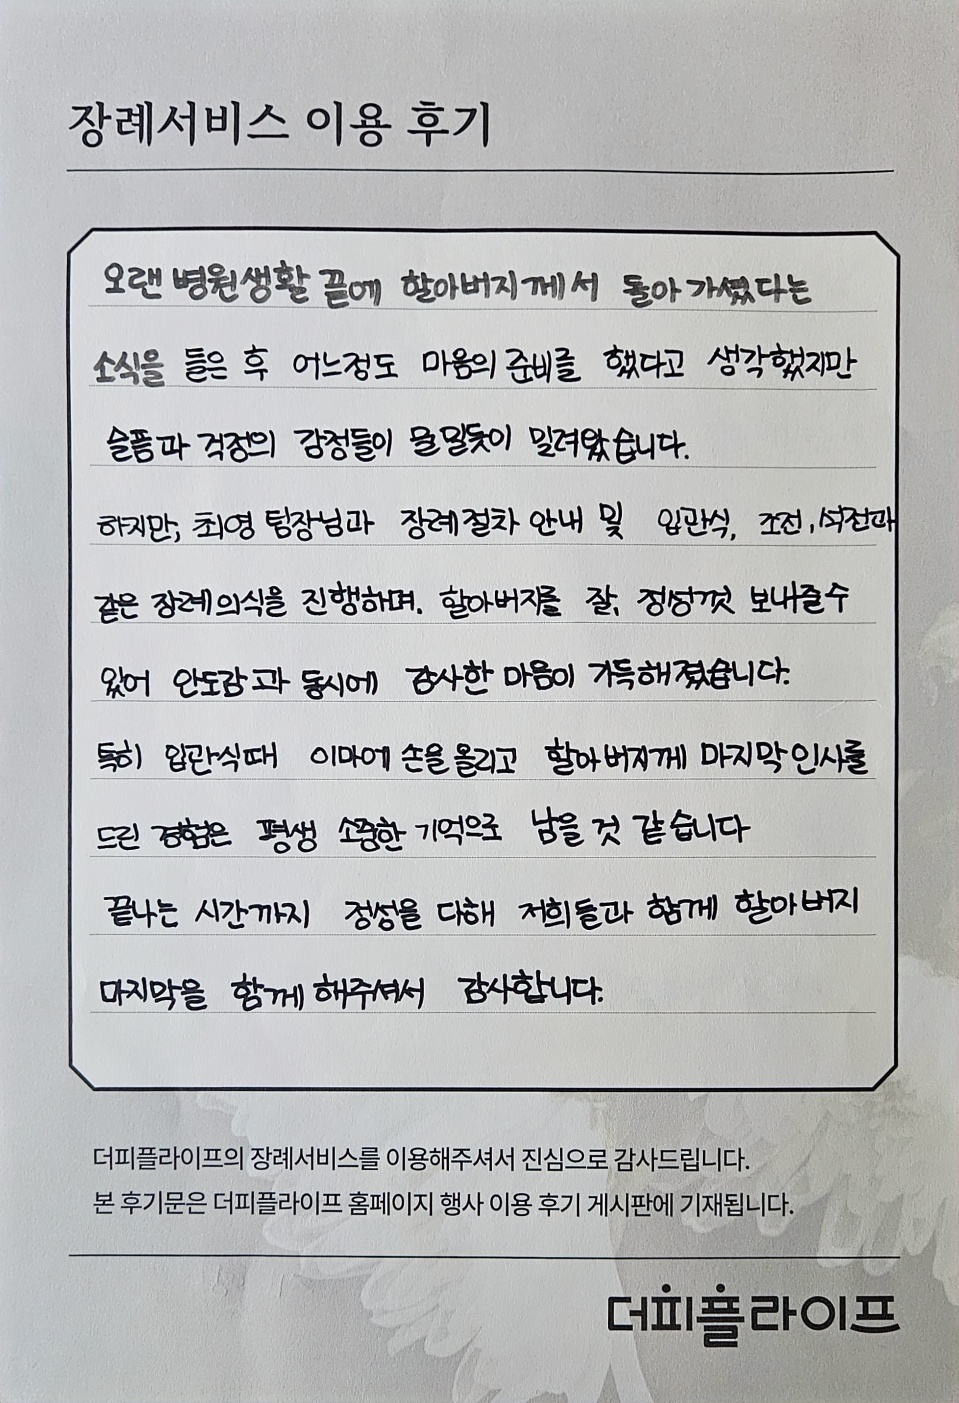 장례서비스 이용 후기
오랜 병원생활 끝에 할아버지께서 돌아 가셨다는
소식을 들은 후 어느정도 마음의 준비를 했다고 생각했지만
슬픔과 걱정의 감정들이 물밀듯이 밀려왔습니다.
하지만, 최영 팀장님과 장례절차 안내 및 입관식, 조전, 석전과
같은 장례의식을 진행하며, 할아버지를 잘, 정성껏 보내줄수
있어 안도감과 동시에 감사한 마음이 가득해졌습니다.
특히 입관식때 이마에 손을 올리고 할아버지께 마지막 인사를
드린 경험은 평생 소중한 기억으로 남을 것 같습니다
끝나는 시간까지 정성을 다해 저희들과 함께 할아버지
마지막을 함께 해주셔서 감사합니다.
더피플라이프의 장례서비스를 이용해주셔서 진심으로 감사드립니다.
본 후기문은 더피플라이프 홈페이지 행사 이용 후기 게시판에 기재됩니다.
더피플라이프